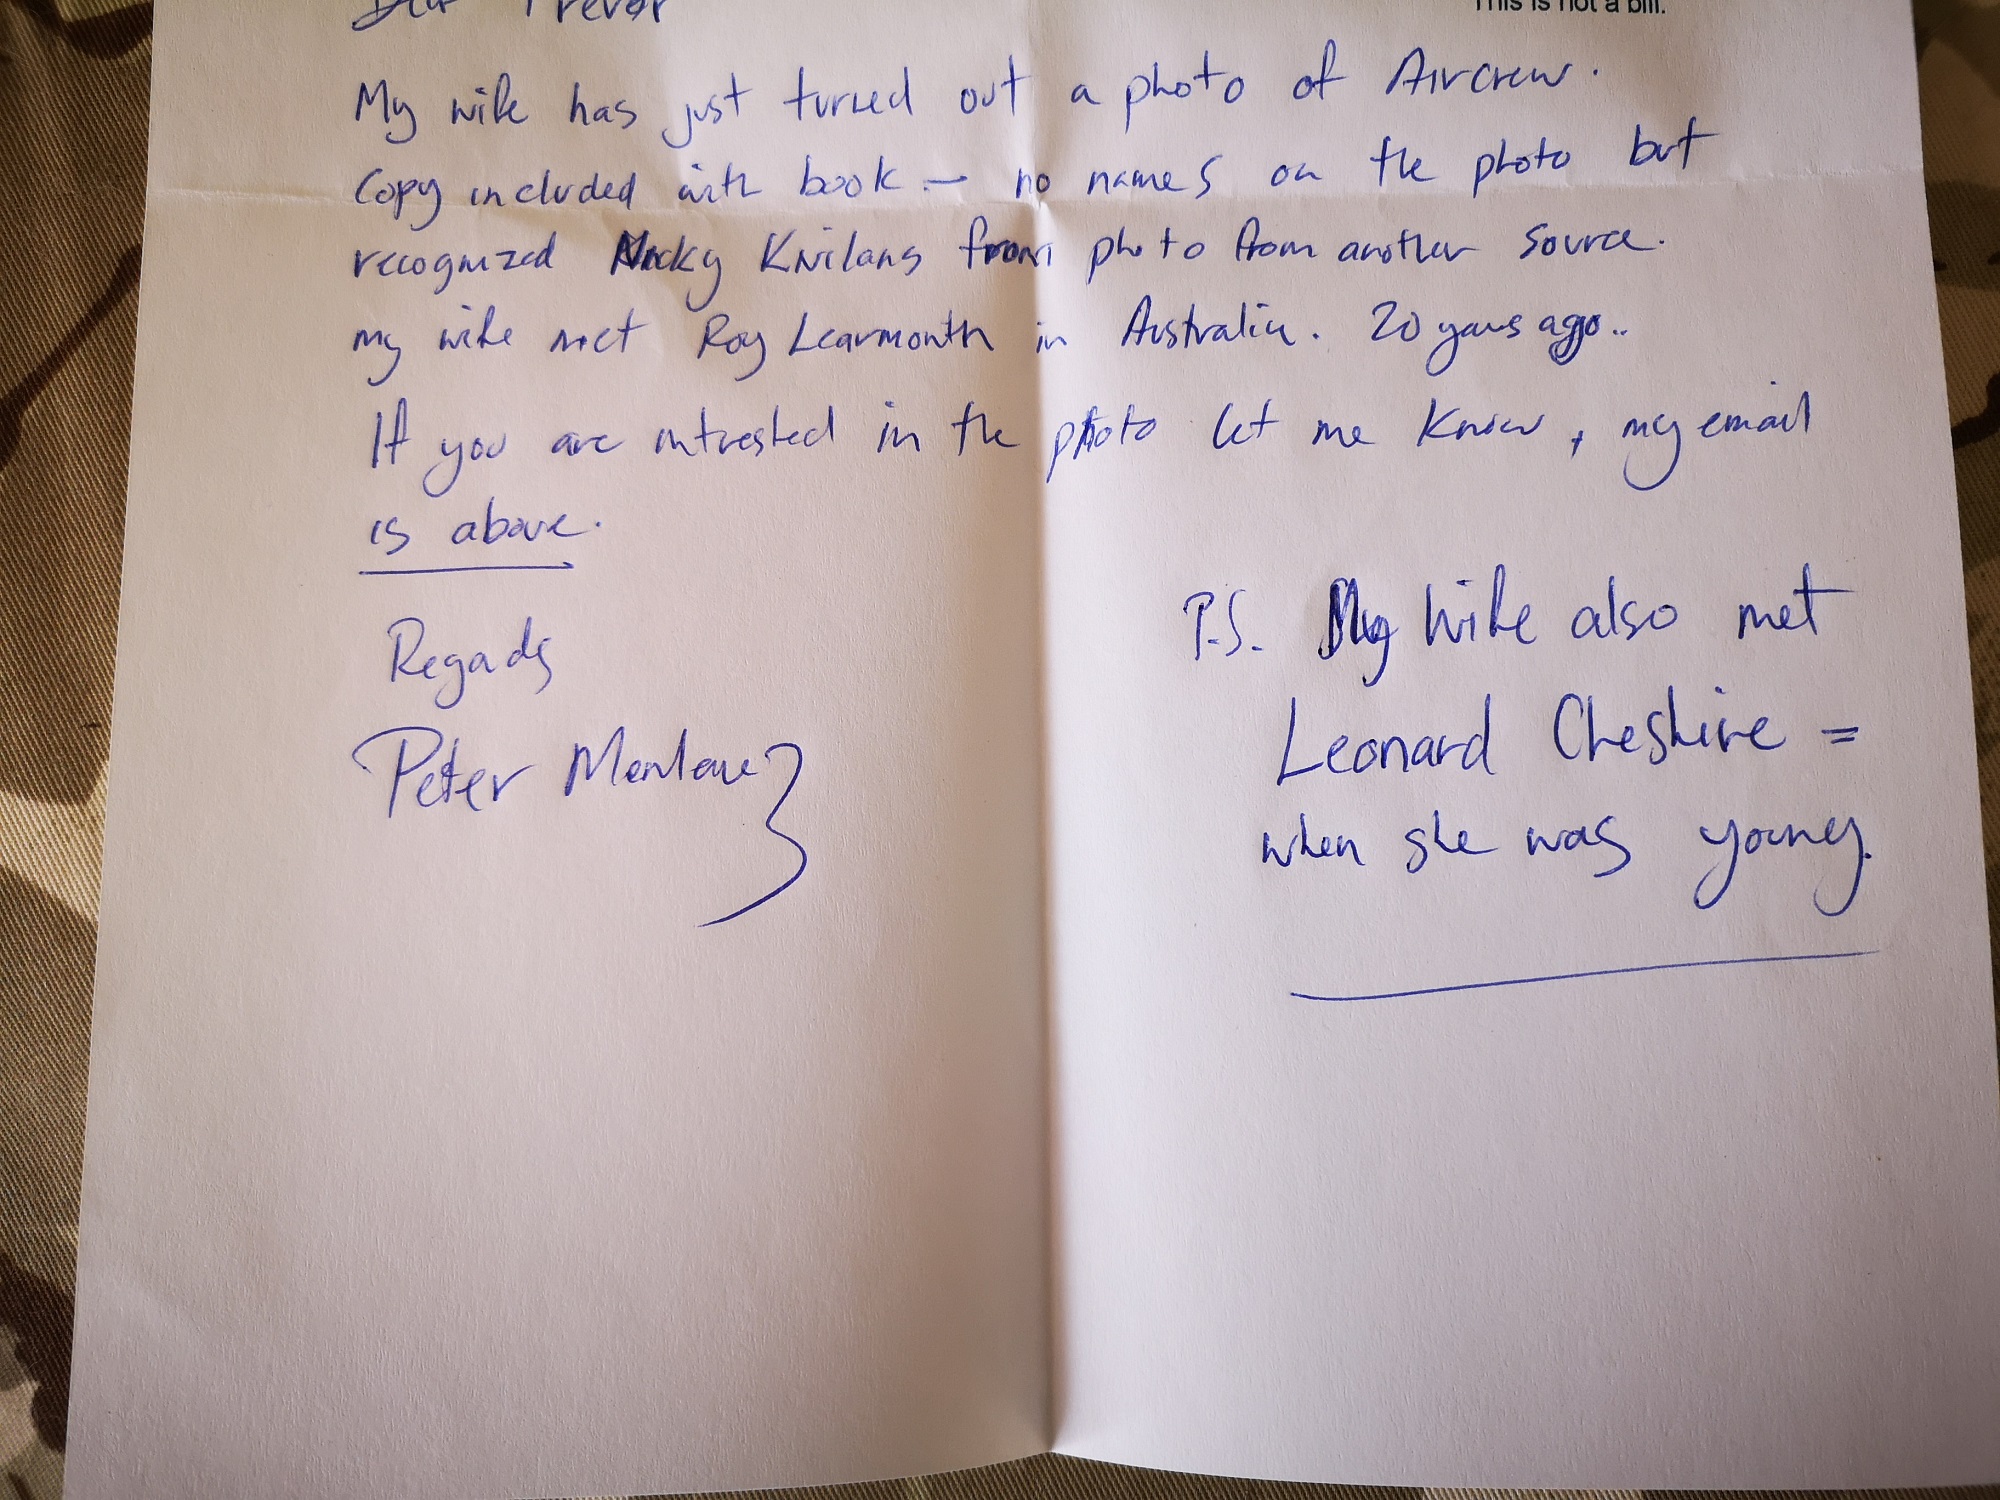 Dear Trevor
This is not a bill.
My wife has just turned out a photo of Aircrew.
Copy included with book — no names on the photo but
recognized Nicky Knilans from photo from another source.
my wife met Roy Learmonth in Australia. 20 years ago..
If you are intrested in the photo let me know, my email
is above.
Regads
Peter
P.S. My Wife also met
Leonard Cheshire =
when she was young.